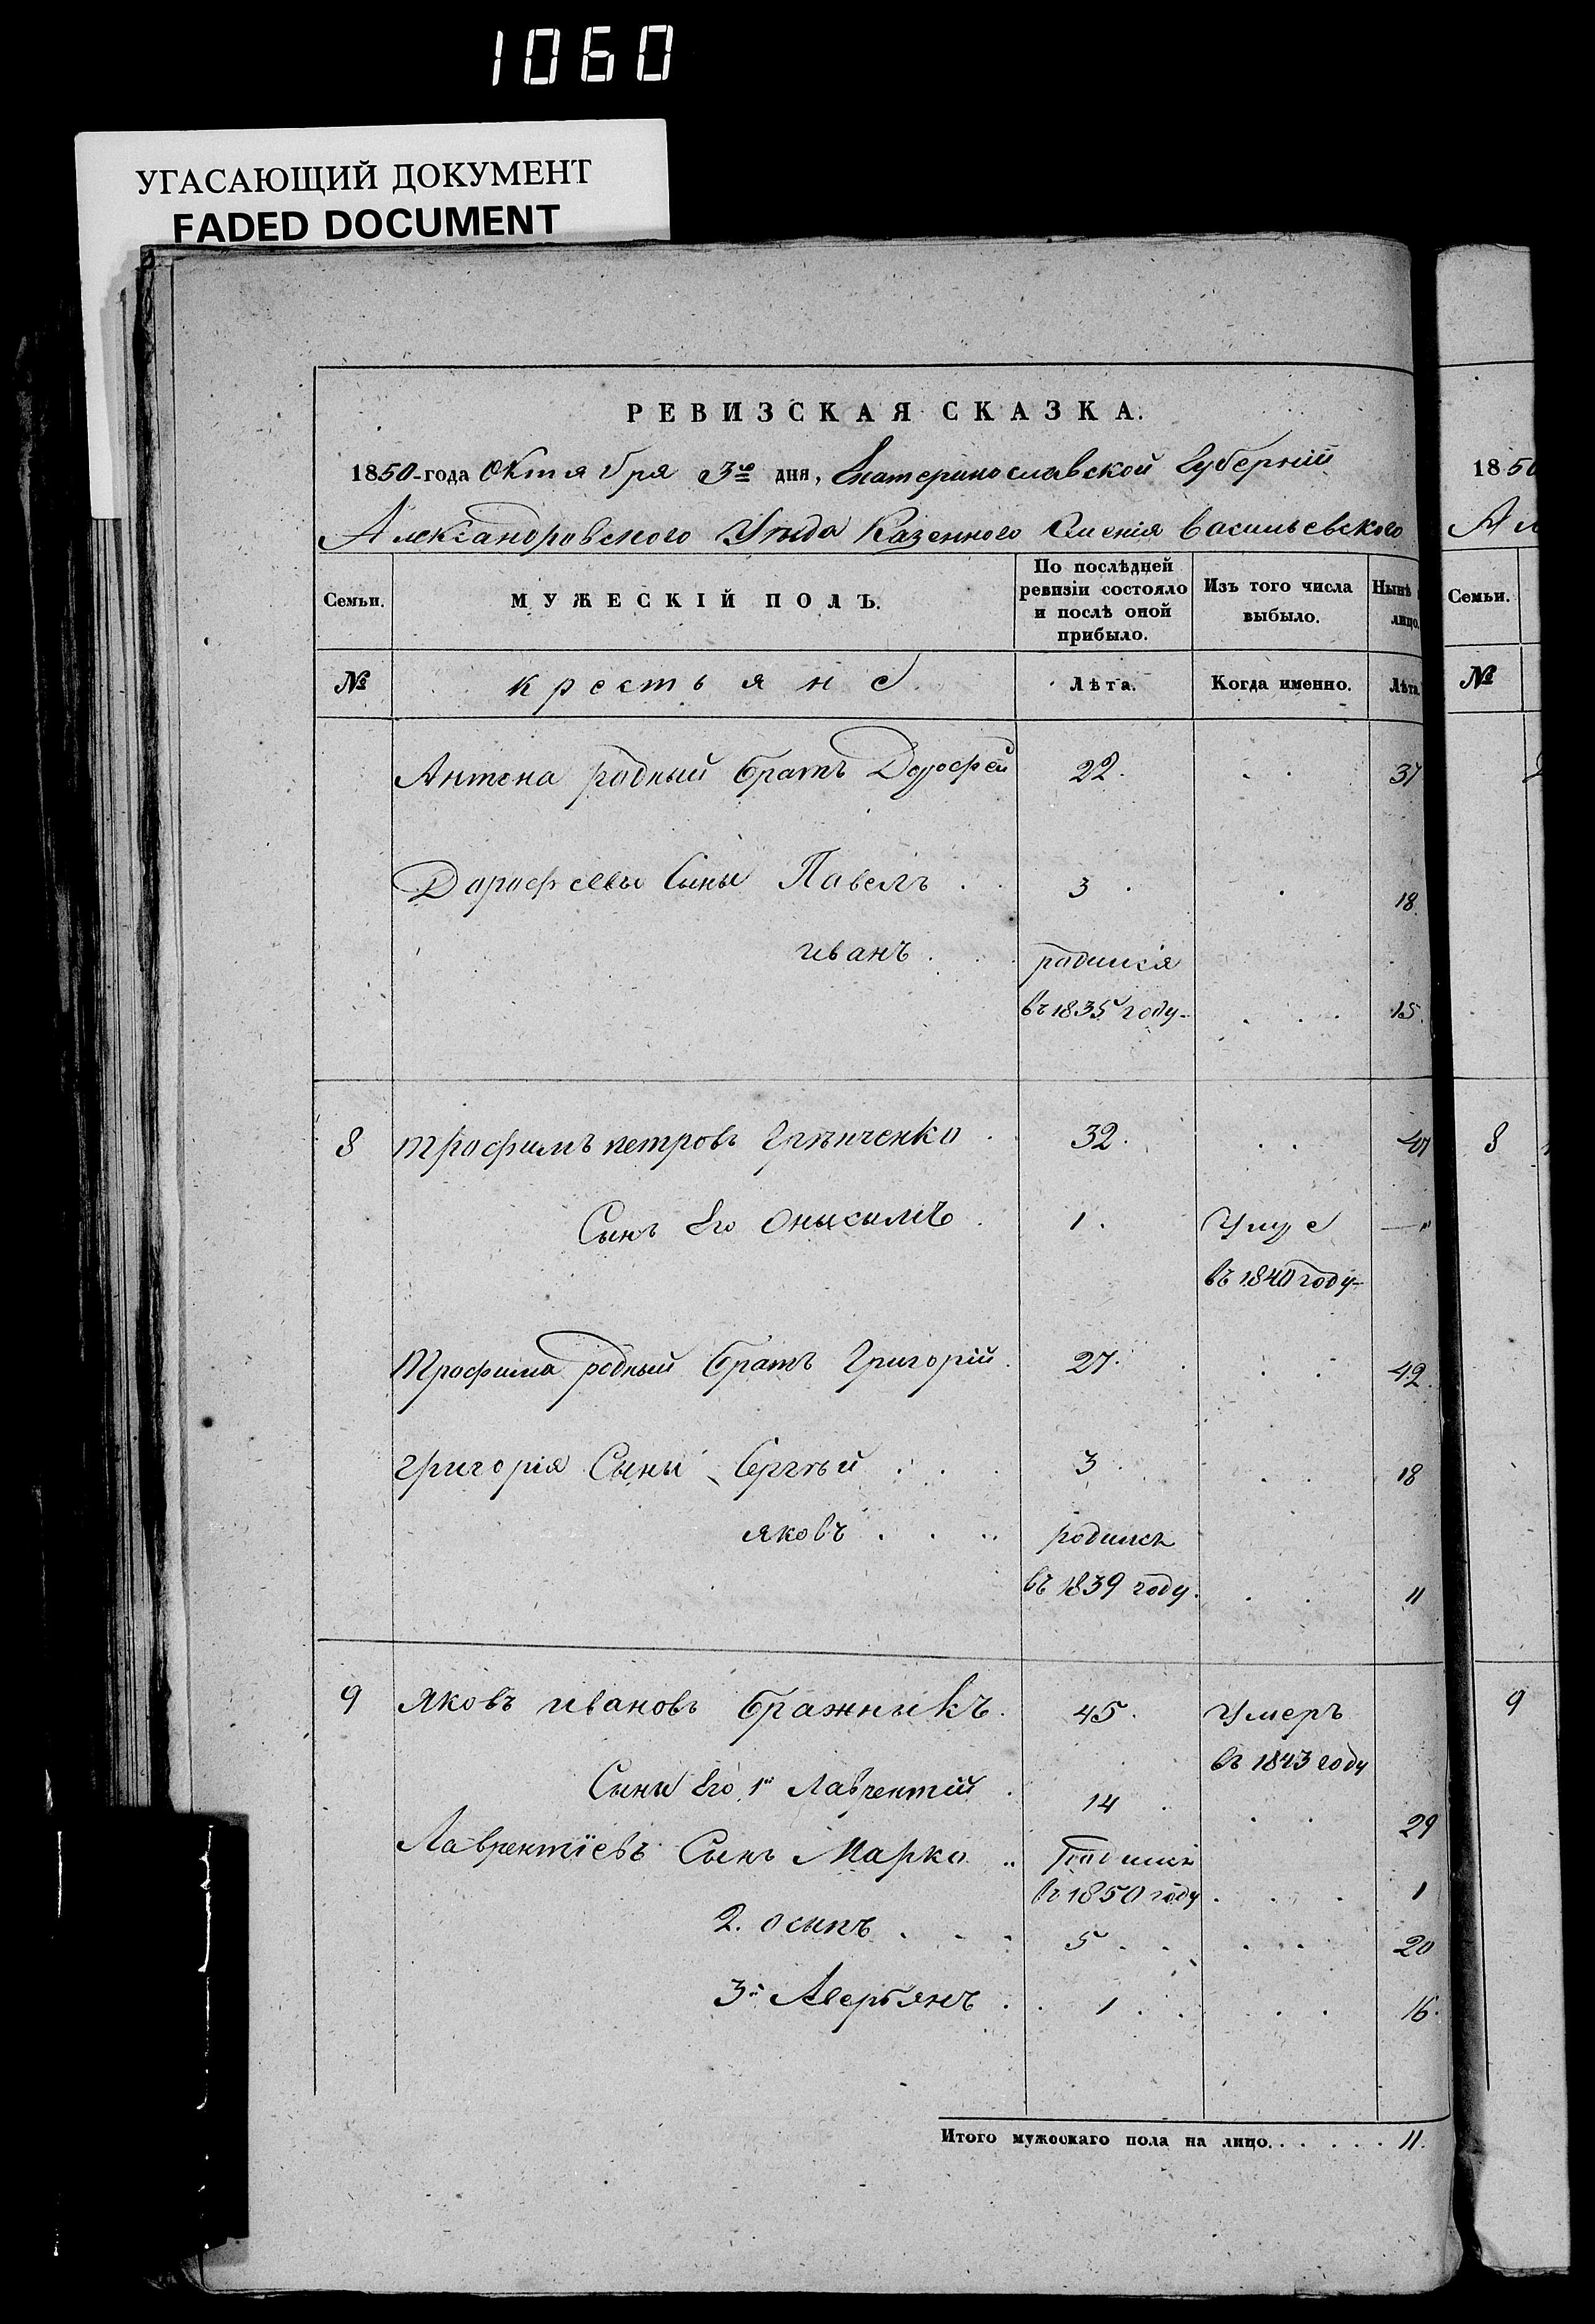 1060
УГАСАЮЩИЙ ДОКУМЕНТ
FADED DOCUMENT
РЕВИЗСКАЯ СКАЗКА.
1850-года Октября 3го дня, Екатеринославской Губерніи
Александровского Уѣзда Казенного Имѣнія Васильевского
Семьи. МУЖЕСКІЙ ПОЛЪ. По послѣдней ревизіи состояло и послѣ оной прибыло. Изъ того числа выбыло. Нынѣ лицо.
№ крестьяне Лѣта. Когда именно. Лѣта.
Антона родный братъ Дорофей 22. 37
Дорофеевы Сыны Павелъ 3 18.
иванъ родился
въ 1835 году 15.
8 трофимъ петровъ Гриниченко 32. 47
Сынъ Его Онысимъ 1. Умре —"
въ 1840 году
Трофима родный братъ Григорій 27. 42.
григорія Сыны Сергѣй 3 18
яковъ родился
въ 1839 году. 11
9 яковъ ивановъ бражныкъ 45. Умеръ
въ 1843 году
Сыны Его 1й Лаврентій 14 29
Лаврентіевъ Сынъ Марко родился
въ 1850 году 1
2. осыпъ 5 20
3й Аверьянъ 1 16.
Итого мужескаго пола на лицо. 11.
1850
Ал
Семьи.
№
8
9